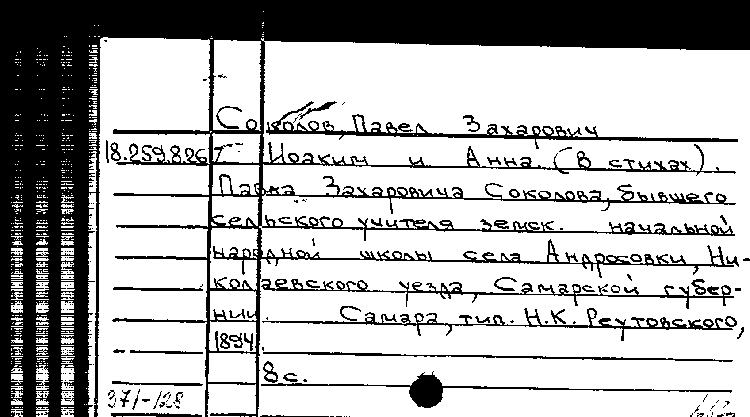 Соколов, Павел Захарович
18.259.826 Т Иоаким и Анна. (В стихах).
Павла Захаровича Соколова, бывшего
сельского учителя земск. начальной
народной школы села Андросовки, Ни-
колаевского уезда, Самарской губер-
нии. Самара, тип. Н.К. Реутовского,
1894.
8 с.
371-128